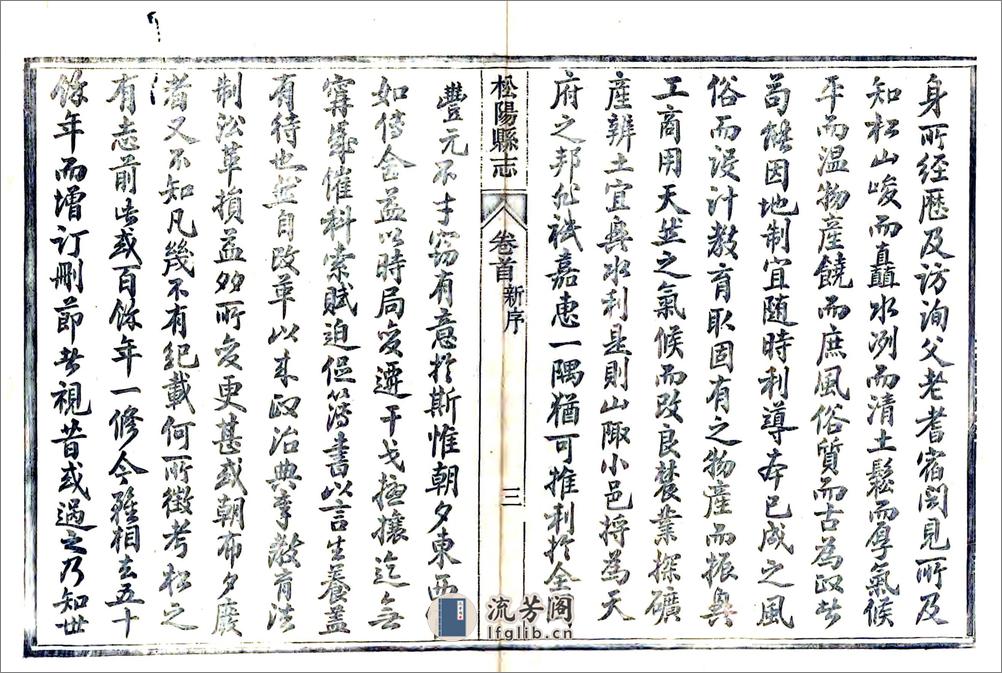 身所經歷及訪詢父老耆宿聞見所及
知松山峻而矗水冽而清土鬆而厚氣候
平而温物產饒而庶風俗質而古為政者
茍能因地制宜随時利導本已成之風
俗而設計教育取固有之物產而振興
工商用天然之氣候而改良農業探礦
產辨土宜興水利是則山陬小邑将為天
府之邦非祇嘉惠一隅猶可推利於全
松陽縣志 卷首 新序 三
豐元不才窃有意於斯惟朝夕東西
如傳舍益以時局變遷干戈擾攘迄無
寧歲催科索賦迫促簿書以言生養蓋
有待也然自改革以来政治典章教育法
制沿革損益多所變更甚或朝布夕廢
者又不知凡幾不有紀載何所徵考松之
有志前此或百餘年一修今雖相去五十
餘年而增訂刪節者視昔或過之乃知世
流芳阁
lfglib.cn